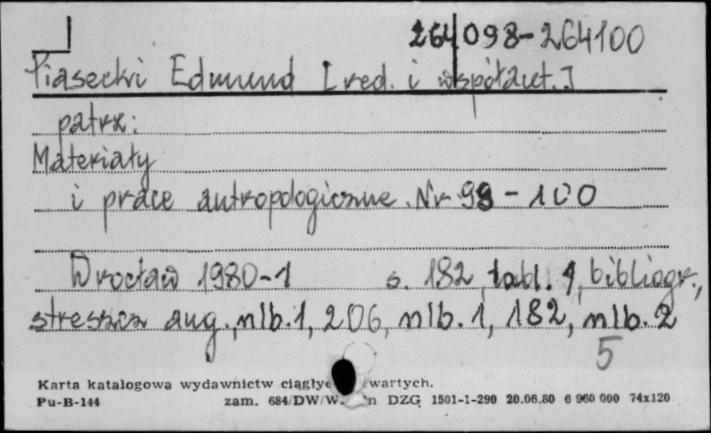 264098-264100
Piasecki Edmund [red. i współaut.]
patrz:
Materiały
i prace antropologiczne. Nr 98-100
Wrocław 1980-1 s. 182, tabl. 1, bibliogr.,
streszcz ang., nlb. 1, 206, nlb. 1, 182, nlb. 2
5
Karta katalogowa wydawnictw ciągłyc wartych.
Pu-B-144 zam. 684/DW/W. n DZG 1501-1-290 20.06.80 6 960 000 74x120